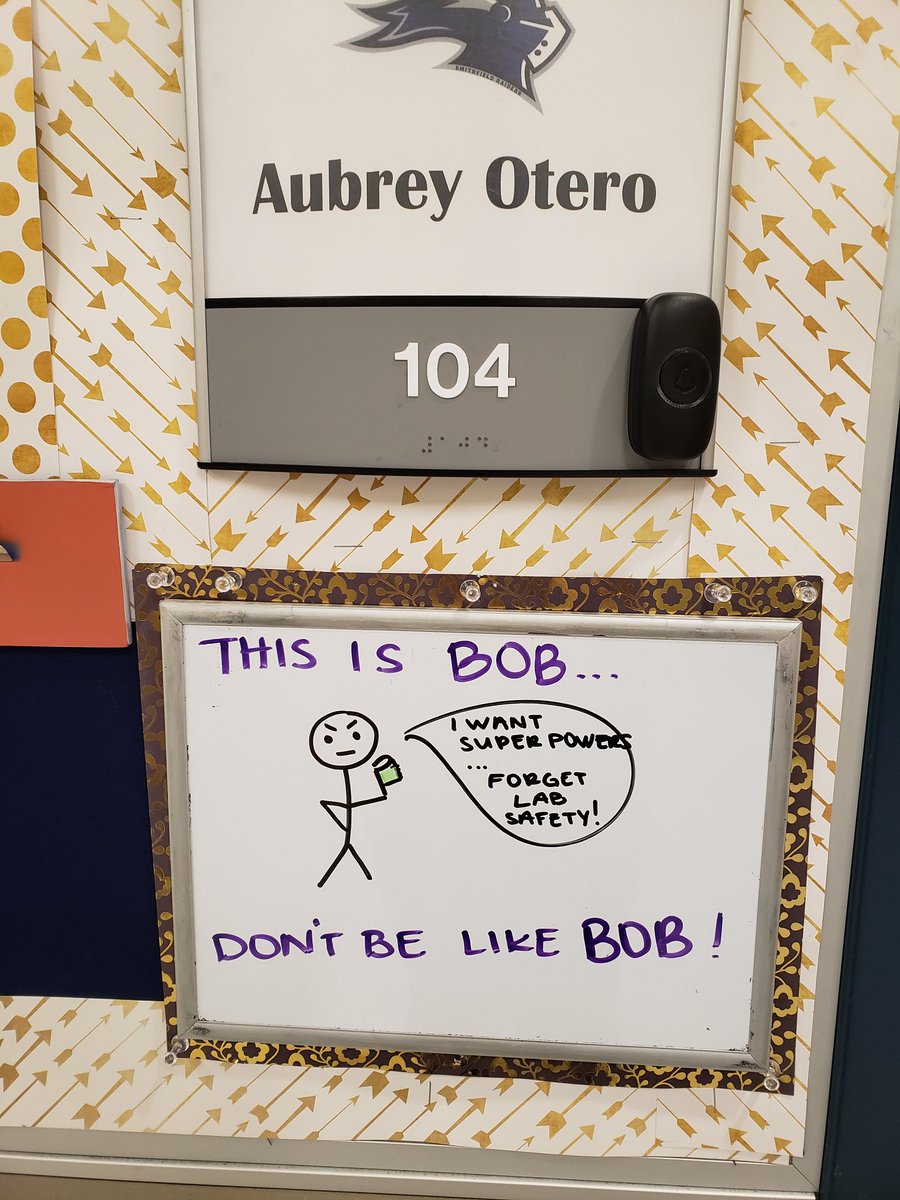 SMITHFIELD RAIDERS
Aubrey Otero
104
THIS IS BOB...
I WANT
SUPER POWERS
...
FORGET
LAB
SAFETY!
DON'T BE LIKE BOB!